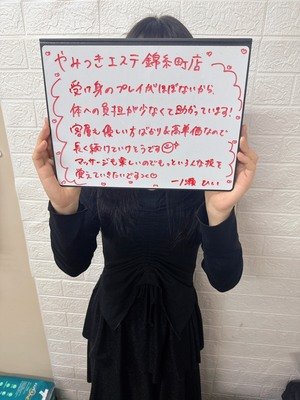 やみつきエステ錦糸町店♡
受け身のプレイがほぼないから
体への負担が少なくて助かっています!
客層も優しい方ばかり&高単価なので
長く続けていけそうです
マッサージも楽しいのでもっといろんな技を
覚えていきたいですっ♡
一ノ瀬